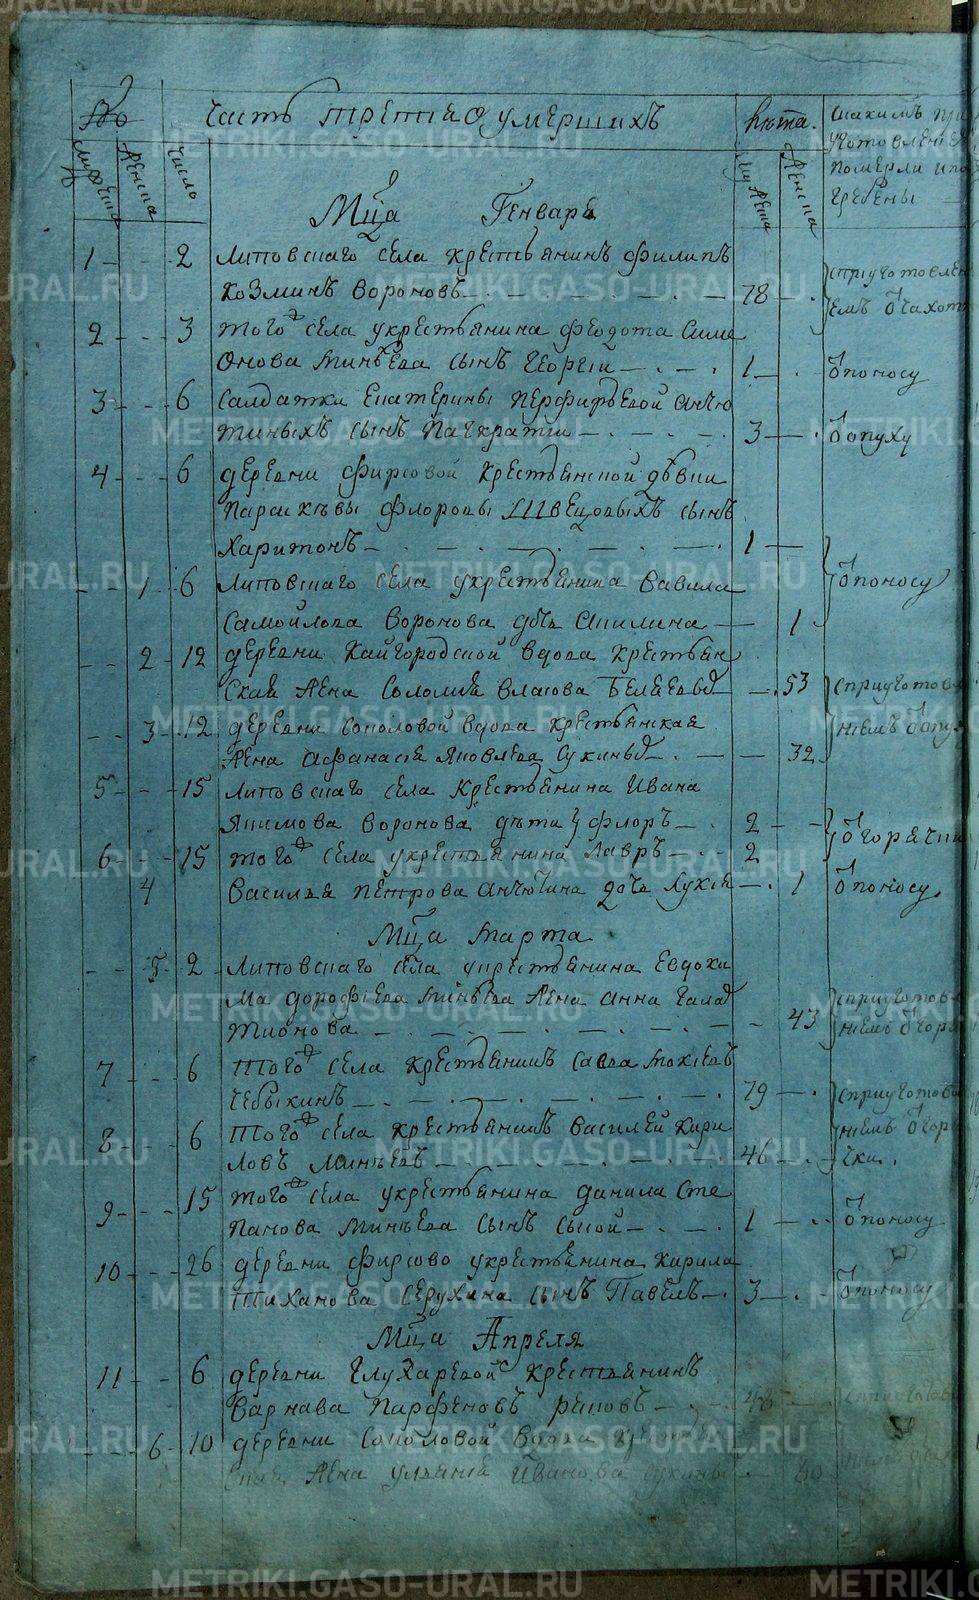 № Часть третиа о умершихъ Лѣта. Скакимъ при
уготовление
померли и по
гребены
Мужеска Женска Число Мужеска Женска
Мца Генваря
1 - - 2 Липовскаго села крестьянинъ Филипъ
Козминъ Вороновъ 78 сприуготовле
емъ ѿ чахот
2 - - 3 того ж села укрестьянина Феодота Симе
онова Минѣева сынъ Георгий 1 ѿ поносу
3 - - 6 Салдатки Екатерины Перфирьевой Анчю
тиныхъ сынъ Панкратий 3 ѿ опуху
4 - - 6 деревни Фирсовой крестьянской дѣвки
Параскѣвы Флоровы Швецовыхъ сынъ
Харитонъ 1
- - 1 6 Липовскаго села укрестьянина Вавила ѿ поносу
Самойлова Воронова дчь Акилина 1
- - 2 12 деревни Кайгородской вдова крестьян
ская жена Соломия Власова Беляевых 53 сприуготов
- - 3 12 деревни Соколовой вдова крестьянская ниемъ ѿ опу
жена Афанасия Яковлева Сукиных 32
5 - - 15 Липовскаго села крестьянина Ивана
Якимова Воронова дѣти Флоръ 2 ѿ горячки
6 - - 15 того ж села укрестьянина Лавръ 2
4 Василья Петрова Анчютина дочь Лукия 1 ѿ поносу
Мца Марта
- - 5 2 Липовскаго села укрестьянина Евдоки
ма Дорофиева Минѣева жена Анна Галак сприуготов
тионова 43 ниемъ ѿ горя
7 - - 6 того ж села крестьянинъ Савва Мокиевъ
Чебыкинъ 79 сприуготов
8 - - 6 того ж села крестьянинъ Василей Кири ниемъ ѿ горя
ловъ Минѣевъ 46 чки.
9 - - 15 того ж села укрестьянина Данила Сте
панова Минѣева сынъ Сысой 1 ѿ поносу
10 - - 26 деревни Фирсово укрестьянина Кирила
Тиханова Серухина сынъ Павелъ 3 ѿ поносу
Мца Апреля
11 - - 6 деревни Глухаревой крестьянинъ
Варнава Парфеновъ Реновъ 48
- - 6 10 деревни Соколовой вдова крестьян
ская жена Улияния Иванова Сукиных 80
METRIKI.GASO-URAL.RU